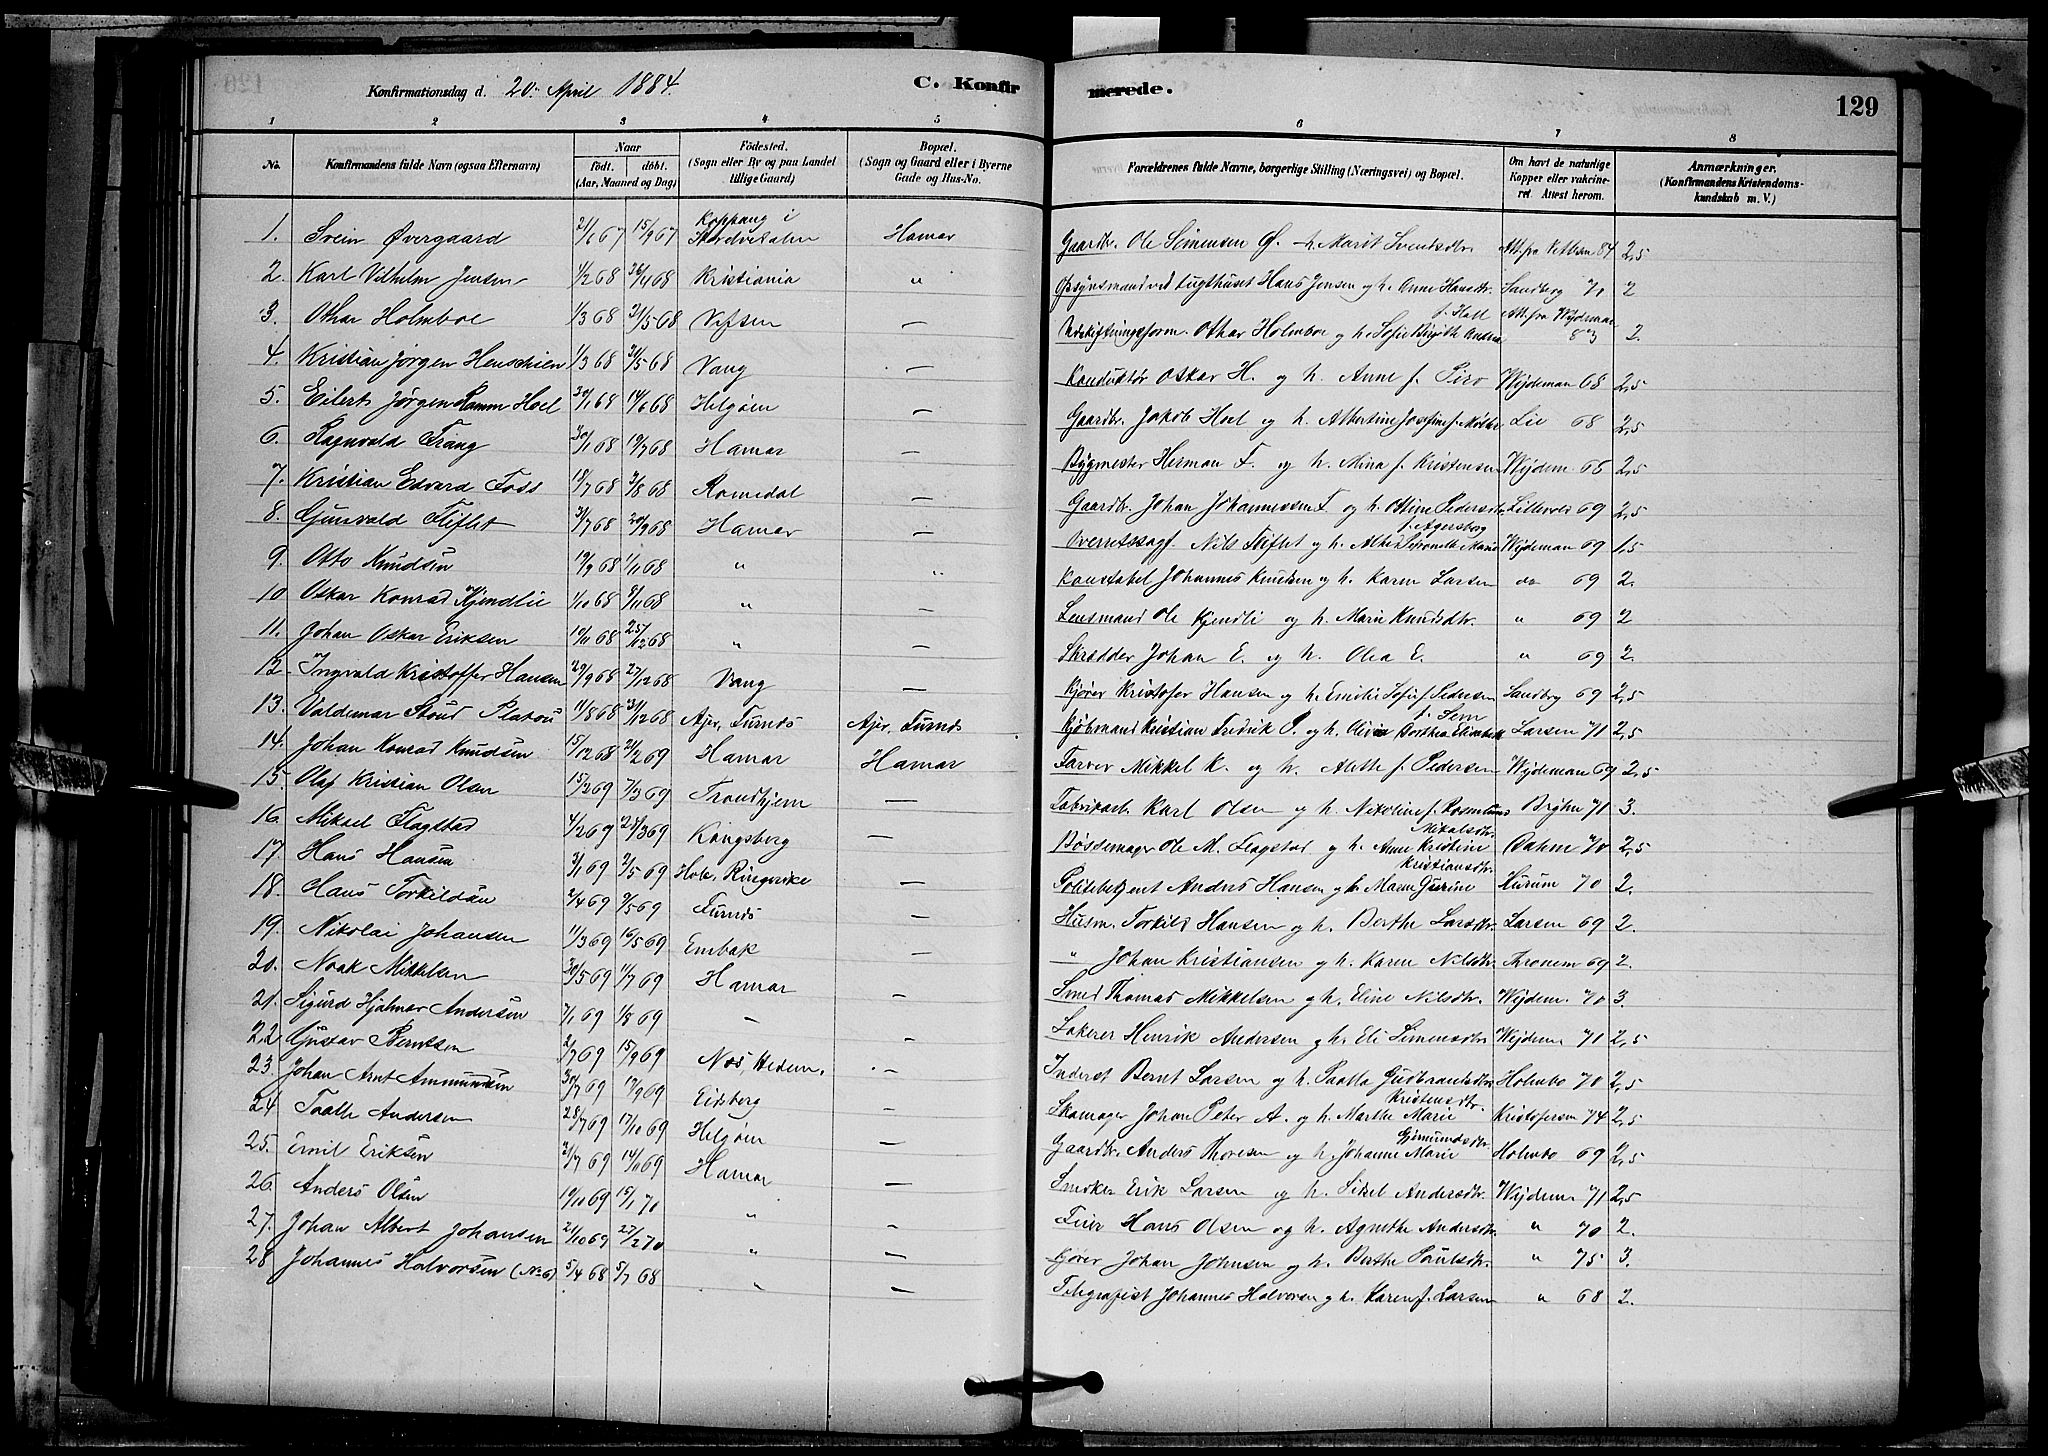 Konfirmationsdag d. 20. April 1884.
C. Konfirmerede.
129
1 2 3 4 5 6 7 8
No. Konfirmandens fulde Navn (ogsaa Efternavn) Naar Født. døbt. (Aar, Maaned og Dag) Fødested. (Sogn eller By og paa Landet tillige Gaard) Bopæl. (Sogn og Gaard eller i Byerne Gade og Hus-No. Forældrenes fulde Navne, borgerlige Stilling (Næringsvei) og Bopæl. Om havt de naturlige Kopper eller vakcineret. Attest herom. Anmærkninger. (Konfirmandens Kristendomskundskab m. V.)
1. Svein Øvergaard 21/1 67 15/9 67 Koppang i Hamar Gaardbr. Ole Simensen Ø. h. Marit Svendsdtr. Att. fra 84 2,5
2. Karl Vilhelm Jensen 1/2 68 26/4 68 Kristiania " Opsynsmand ved Tugthuset Hans Jensen og h. Anne Hansdtr. Sandberg 70 2
3. Othar Holmboe 1/3 68 31/5 68 Vefsen — Udskiftningsform. Othar Holmboe og h. Sofie Birgitte Andrea f. Hall Att. fra Wejdeman 83 2.
4. Kristian Jørgen Henschien 1/3 68 31/5 68 Vang — Konduktør Oskar H. og h. Anne f. Piro Wejdeman 68 2,5
5. Eilert Jørgen Ramm Hoel 30/1 68 14/6 68 Helgøen — Gaardbr. Jakob Hoel og h. Albertine Josefine f. Møller Lie 68 2,5
6. Ragnvald Frang 30/1 68 19/7 68 Hamar — Bygmester Herman F. og h. Mina f. Kristensen Wejdem. 68 2,5
7. Kristian Edvard Foss 18/7 68 2/8 68 Romedal — Gaardbr. Johan Johannessen F. og h. Oline Pedersdtr. 69 2,5
8. Gunvald Fliflet 31/7 68 20/9 68 Hamar — Overretssagf. Nils Fliflet og h. Petronelle Marie f. Agersborg Wejdeman 69 1,5
9. Otto Knudsen 19/9 68 1/11 68 " " Konstabel Johannes Knudsen og h. Karen Larsen do 69 2.
10 Oskar Konrad Kjendlie 1/10 68 8/11 68 " — Lensmand Ole Kjendli og h. Marie Knudsdtr. " 69 2
11. Johan Oskar Eriksen 10/11 68 25/12 68 " — Skrædder Johan E. og h. Olea E. " 69 2.
12. Ingvald Kristoffer Hansen 29/9 68 27/12 68 Vang — Kjører Kristofer Hansen og h. Emilie Sofie f. Pedersen Sandberg 69 2,5
13. Valdemar Stoud Platou 11/8 68 31/12 68 Ajer, Furnes Ajer, Furnes Kjøbmand Kristian Fredrik P. og h. Olivia Dorthea Elisabeth f. Sem Larsen 71 2,5
14. Johan Konrad Knudsen 15/12 68 21/2 69 Hamar Hamar Farver Mikkel K. og h. Anthe f. Pedersen Wejdeman 69 2,5
15. Olaf Kristian Olsen 15/2 69 7/3 69 Trondhjem — Fabrikarb. Karl Olsen og h. Nikoline f. Rasmussen Brøhn 71 3.
16. Mikael Flagstad 4/2 69 28/3 69 Kongsberg — Bøssemager Ole M. Flagstad og h. Anne Kristine Mikalsdtr. Dahm 70 2,5
17. Hans Hansen 3/1 69 2/5 69 Hole, Ringerike — Politibetjent Anders Hansen og h. Maren Gurine Kristiansdtr. Hurum 70 2.
18. Hans Torkildsen 2/4 69 9/5 69 Furnes — Husm. Torkild Hansen og h. Berthe Larsdtr. Larsen 69 2.
19. Nikolai Johansen 11/3 69 16/5 69 Enebak — " Johan Kristiansen og h. Karen Nilsdtr. Thronem 69 2.
20. Noak Mikkelsen 30/5 69 11/7 69 Hamar — Smed Thomas Mikkelsen og h. Eline Nilsdtr. Wejdem. 70 3.
21. Sigurd Hjalmar Andersen 7/1 69 1/8 69 — — Lakerer Henrik Andersen og h. Eli Simensdtr. Wejdem 71 2,5
22. Gustav Berntsen 2/7 69 15/9 69 Næs, Hedem. — Inderst Bernt Larsen og h. Gudbrandsdtr. Holmbo 70 2,5
23. Johan Arnt Ammundsen 30/7 69 19/9 69 Eidsberg — Skomager Johan Peter A. og h. Marthe Marie Kristensdtr. Kristofersen 74 2,5
24. Andersen 28/7 69 17/10 69 Helgøen — Gaardbr. Anders Thoresen og h. Johanne Marie Holmbo 69 2,5
25. Emil Eriksen 31/7 69 14/11 69 Hamar — Snedker Erik Larsen og h. Sidsel Andersdtr. Wejdem 71 2,5
26. Anders Olsen 19/10 69 15/1 70 " — Feier Hans Olsen og h. Agnethe Andersdtr. " 70 2.
27. Johan Albert Johansen 21/10 69 27/2 70 " — Kjører Johan Johnsen og h. Berthe Paulsdtr. " 75 3.
28 Johannes Halvorsen (No 6) 5/4 68 5/7 68 " Telegrafist Johannes Halvorsen og h. Karen f. Larsen " 68 2.